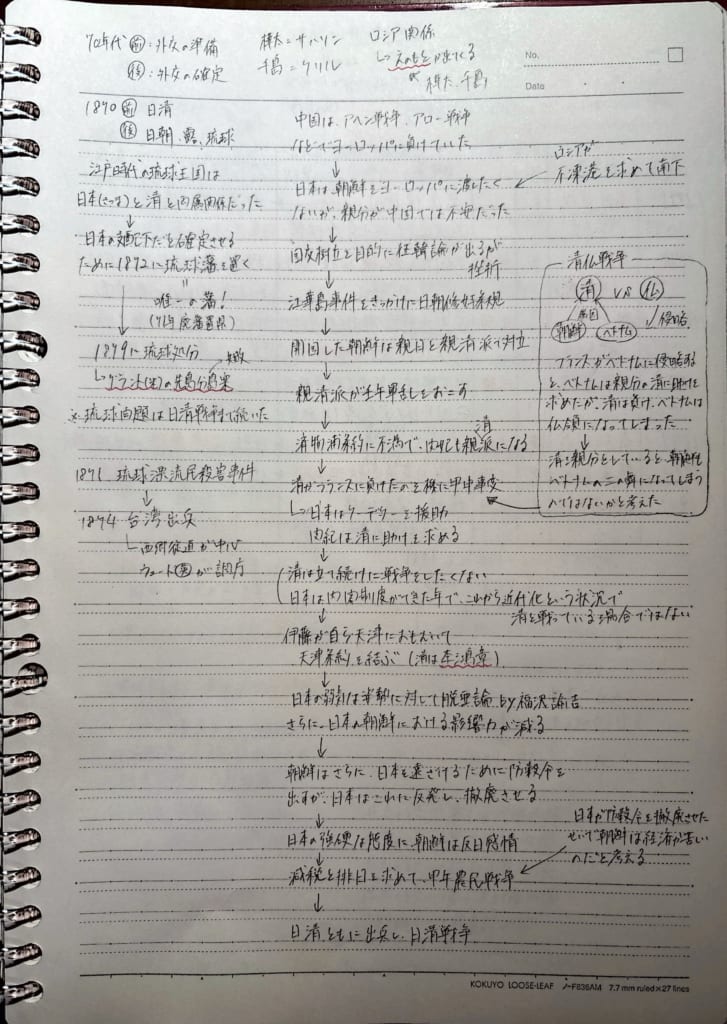 70年代 前：外交の準備
後：外交の確定
樺太＝サハリン
千島＝クリル
ロシア関係
↳えのもとが出てくる
樺太、千島
No.
Date
1870 前 日清
後 日朝、露、琉球
江戸時代の琉球王国は
日本(さつま)と清と両属関係だった
↓
日本の支配下だと確定させる
ために1872に琉球藩を置く
唯一の藩！
(71年廃藩置県)
1879に琉球処分
↳グラント(米)の先島分島案 失敗
※琉球問題は日清戦争まで続いた
1871 琉球漂流民殺害事件
↓
1874 台湾出兵
↳西郷従道が中心
ウェード(英)が調停
中国は、アヘン戦争、アロー戦争
などでヨーロッパに負けていた
↓
日本は、朝鮮をヨーロッパに渡したく
ないが、親分が中国では不安だった
ロシアが
不凍港を求めて南下
↓
国交樹立を目的に征韓論が出るが
挫折
↓
江華島事件をきっかけに日朝修好条規
↓
開国した朝鮮は親日と親清派で対立
↓
親清派が壬午軍乱をおこす
↓
済物浦条約に不満で、閔妃も親清派になる
↓
清がフランスに負けたのを機に甲申事変
↳日本はクーデターを援助
閔妃は清に助けを求める
↓
清は立て続けに戦争をしたくない
日本は内閣制度ができた年で、これから近代化という状況で
清と戦っている場合ではない
伊藤が自ら天津におもむいて
天津条約を結ぶ (清は李鴻章)
↓
日本の弱気な姿勢に対して脱亜論 by福沢諭吉
さらに、日本の朝鮮における影響力が減る
↓
朝鮮はさらに、日本を遠ざけるために防穀令を
出すが、日本はこれに反発し、撤廃させる
↓
日本の強硬な態度に、朝鮮は反日感情
↓
減税と排日を求めて、甲午農民戦争
日本が防穀令を撤廃させた
せいで朝鮮は経済が苦しい
のだと考える
↓
日清ともに出兵し、日清戦争
清仏戦争
清 VS 仏
属国
朝鮮 ベトナム 侵略
フランスがベトナムに侵略する
と、ベトナムは親分の清に助けを
求めたが、清は負け、ベトナムは
仏領になってしまった
↓
清を親分としていると、朝鮮も
ベトナムの二の舞になってしまう
のではないかと考えた
KOKUYO LOOSE-LEAF ノ-F836AM 7.7 mm ruled×27 lines